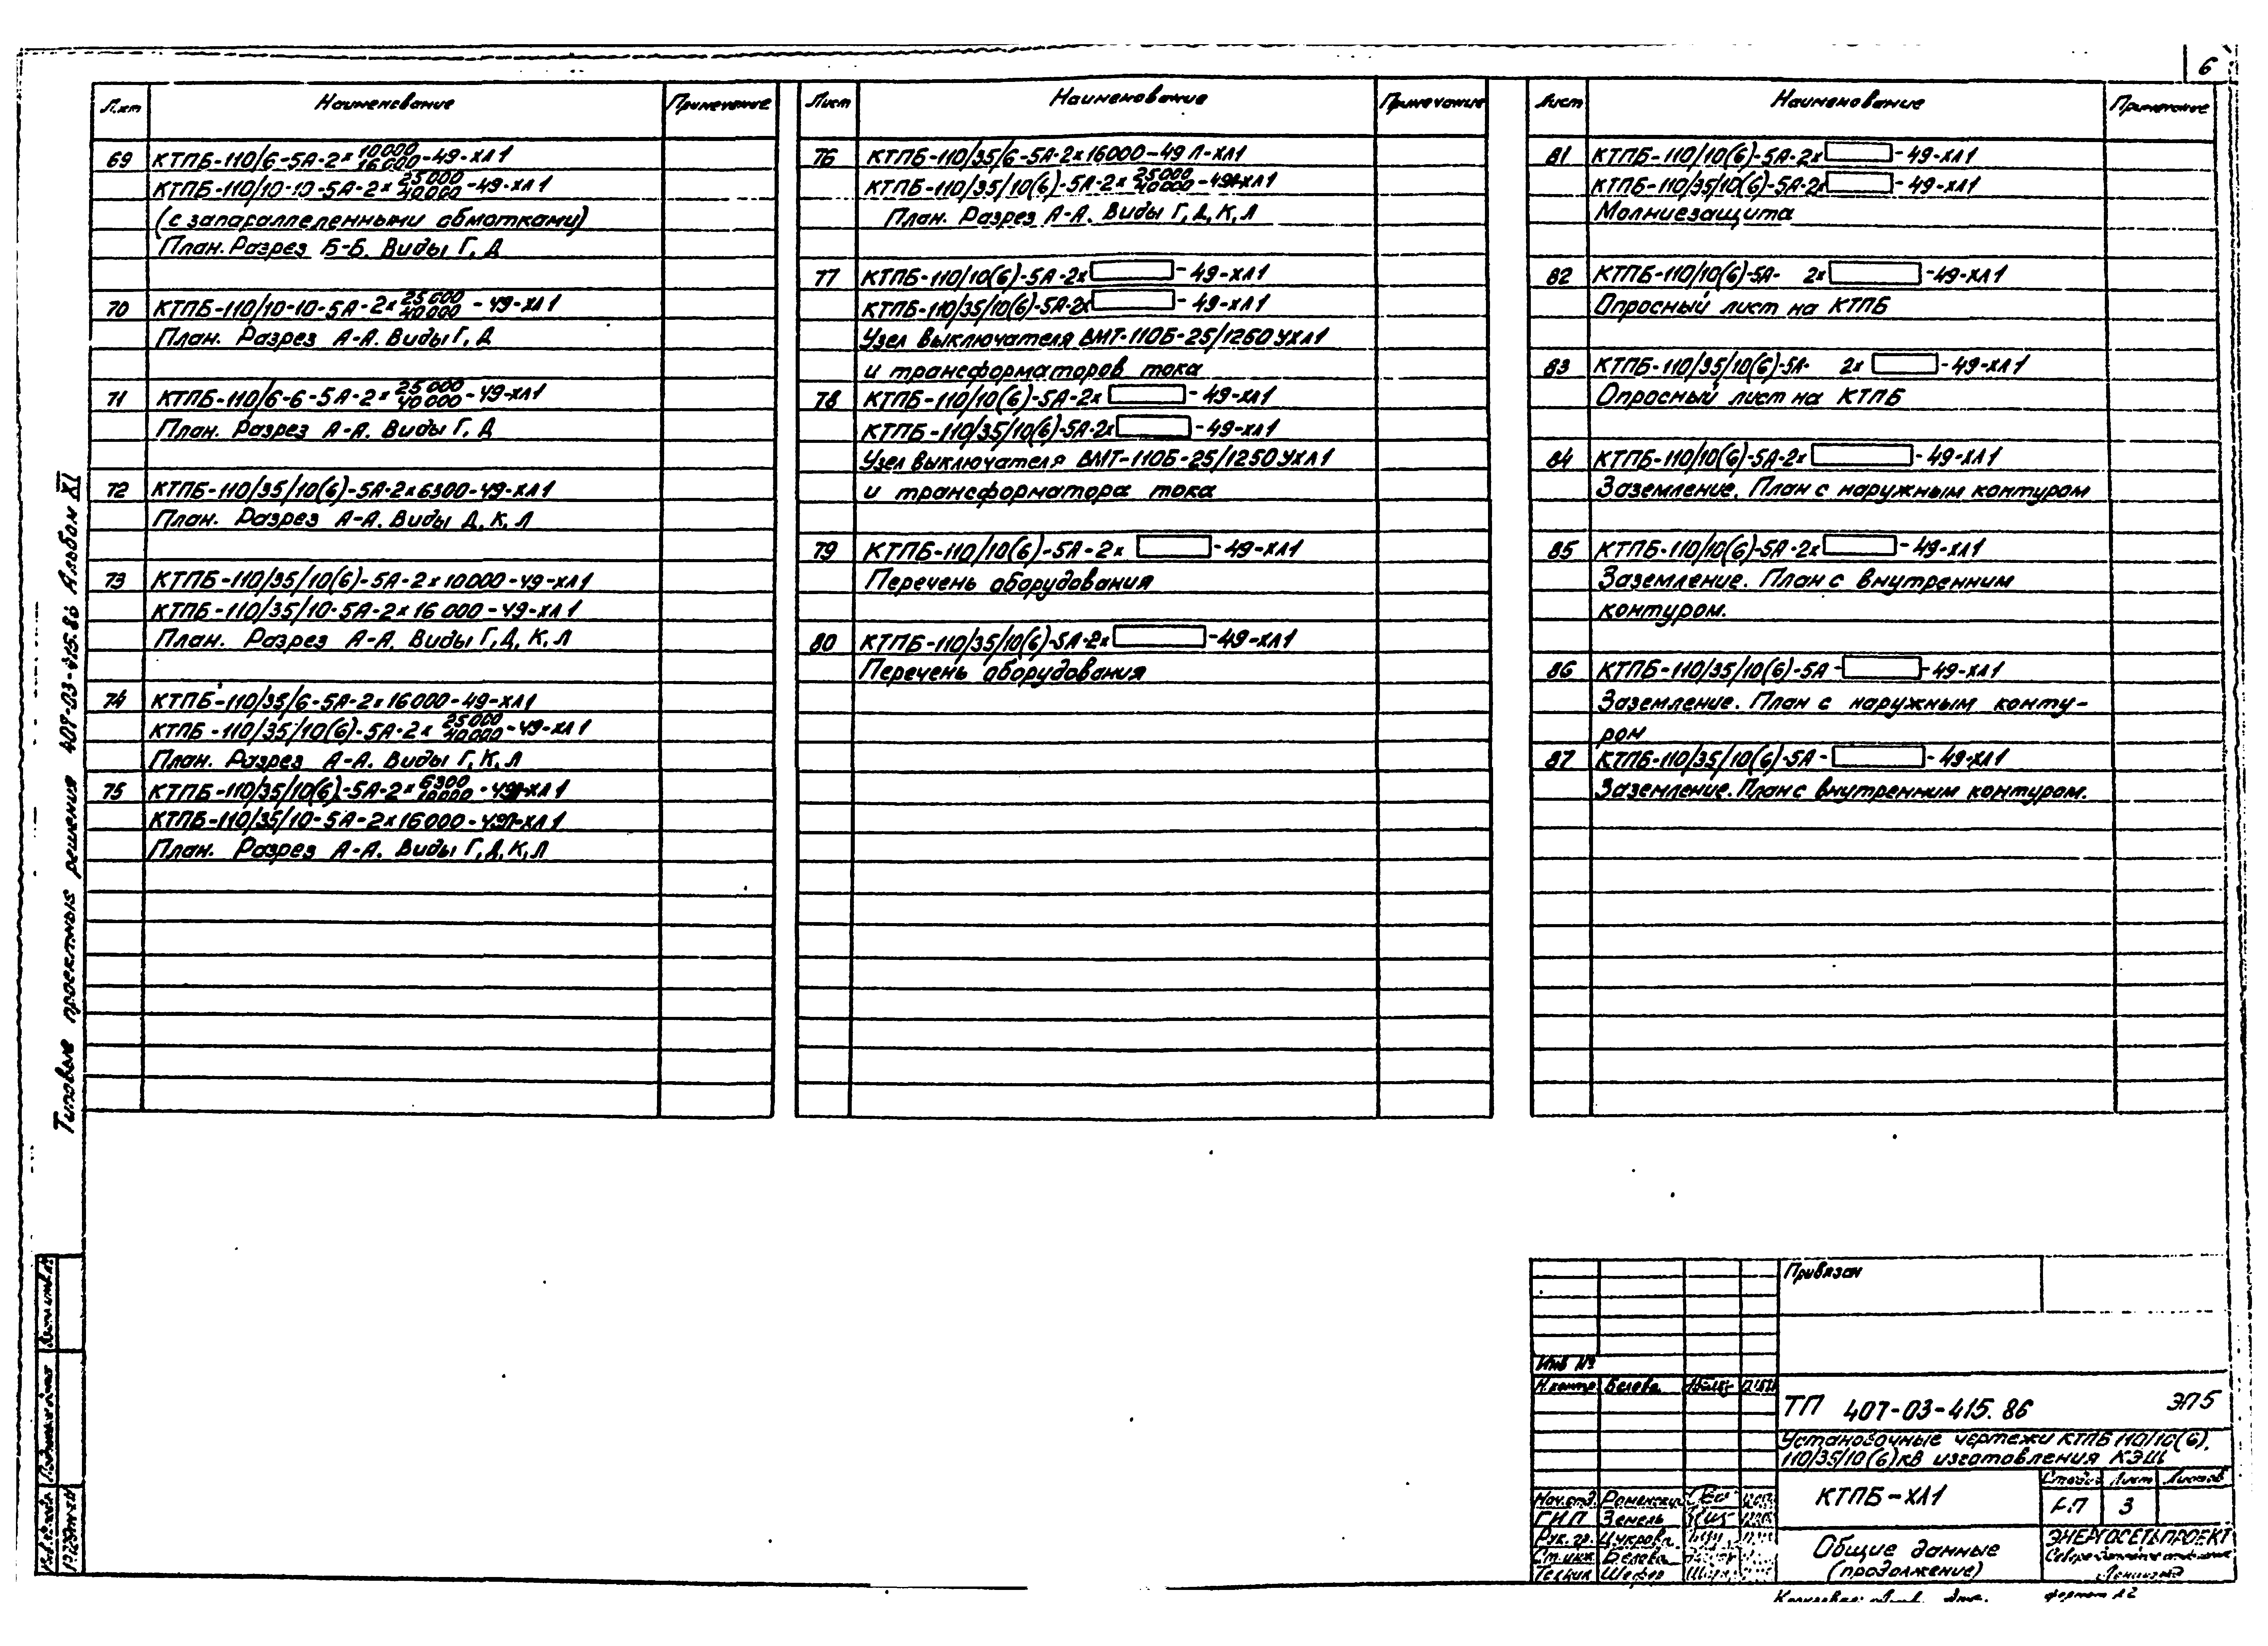 6
Лист Наименование Примечание
69 КТПБ-110/6-5А-2х10000/16000-49-ХЛ1
КТПБ-110/10-10-5А-2х25000/40000-49-ХЛ1
(с запараллеленными обмотками)
План. Разрез Б-Б. Виды Г, Д
70 КТПБ-110/10-10-5А-2х25000/40000-49-ХЛ1
План. Разрез А-А. Виды Г, Д
71 КТПБ-110/6-6-5А-2х25000/40000-49-ХЛ1
План. Разрез А-А. Виды Г, Д
72 КТПБ-110/35/10(6)-5А-2х6300-49-ХЛ1
План. Разрез А-А. Виды Д, К, Л
73 КТПБ-110/35/10(6)-5А-2х10000-49-ХЛ1
КТПБ-110/35/10-5А-2х16000-49-ХЛ1
План. Разрез А-А. Виды Г, Д, К, Л
74 КТПБ-110/35/6-5А-2х16000-49-ХЛ1
КТПБ-110/35/10(6)-5А-2х25000/40000-49-ХЛ1
План. Разрез А-А. Виды Г, К, Л
75 КТПБ-110/35/10(6)-5А-2х6300/10000-49Л-ХЛ1
КТПБ-110/35/10-5А-2х16000-49Л-ХЛ1
План. Разрез А-А. Виды Г, Д, К, Л
Лист Наименование Примечание
76 КТПБ-110/35/6-5А-2х16000-49Л-ХЛ1
КТПБ-110/35/10(6)-5А-2х25000/40000-49Л-ХЛ1
План. Разрез А-А. Виды Г, Д, К, Л
77 КТПБ-110/10(6)-5А-2х -49-ХЛ1
КТПБ-110/35/10(6)-5А-2х -49-ХЛ1
Узел выключателя ВМТ-110Б-25/1250УХЛ1
и трансформаторов тока
78 КТПБ-110/10(6)-5А-2х -49-ХЛ1
КТПБ-110/35/10(6)-5А-2х -49-ХЛ1
Узел выключателя ВМТ-110Б-25/1250УХЛ1
и трансформатора тока
79 КТПБ-110/10(6)-5А-2х -49-ХЛ1
Перечень оборудования
80 КТПБ-110/35/10(6)-5А-2х -49-ХЛ1
Перечень оборудования
Лист Наименование Примечание
81 КТПБ-110/10(6)-5А-2х -49-ХЛ1
КТПБ-110/35/10(6)-5А-2х -49-ХЛ1
Молниезащита
82 КТПБ-110/10(6)-5А- 2х -49-ХЛ1
Опросный лист на КТПБ
83 КТПБ-110/35/10(6)-5А- 2х -49-ХЛ1
Опросный лист на КТПБ
84 КТПБ-110/10(6)-5А-2х -49-ХЛ1
Заземление. План с наружным контуром
85 КТПБ-110/10(6)-5А-2х -49-ХЛ1
Заземление. План с внутренним
контуром.
86 КТПБ-110/35/10(6)-5А- -49-ХЛ1
Заземление. План с наружным конту-
ром
87 КТПБ-110/35/10(6)-5А- -49-ХЛ1
Заземление. План с внутренним контуром.
Типовые проектные решения 407-03-415.86 Альбом XI
Привязан
Инв №
Н.контр Белева
ТП 407-03-415.86 ЭП5
Установочные чертежи КТПБ 110/10(6),
110/35/10(6)кВ изготовления КЭЩ
КТПБ-ХЛ1
Стадия Лист Листов
3
Нач.отд. Роменский
ГИП Земель
Рук.гр. Цукрова
Ст.инж Белева
Техник Шефер
Общие данные
(продолжение)
ЭНЕРГОСЕТЬПРОЕКТ
Ленинград
формат А2